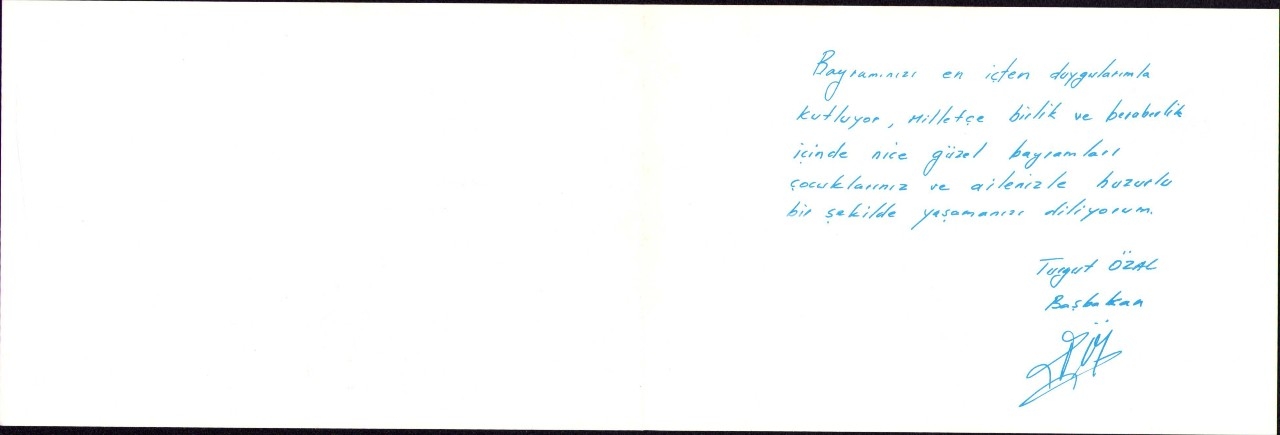 Bayramınızı en içten duygularımla
kutluyor, Milletçe birlik ve beraberlik
içinde nice güzel bayramları
çocuklarınız ve ailenizle huzurlu
bir şekilde yaşamanızı diliyorum.
Turgut ÖZAL
Başbakan